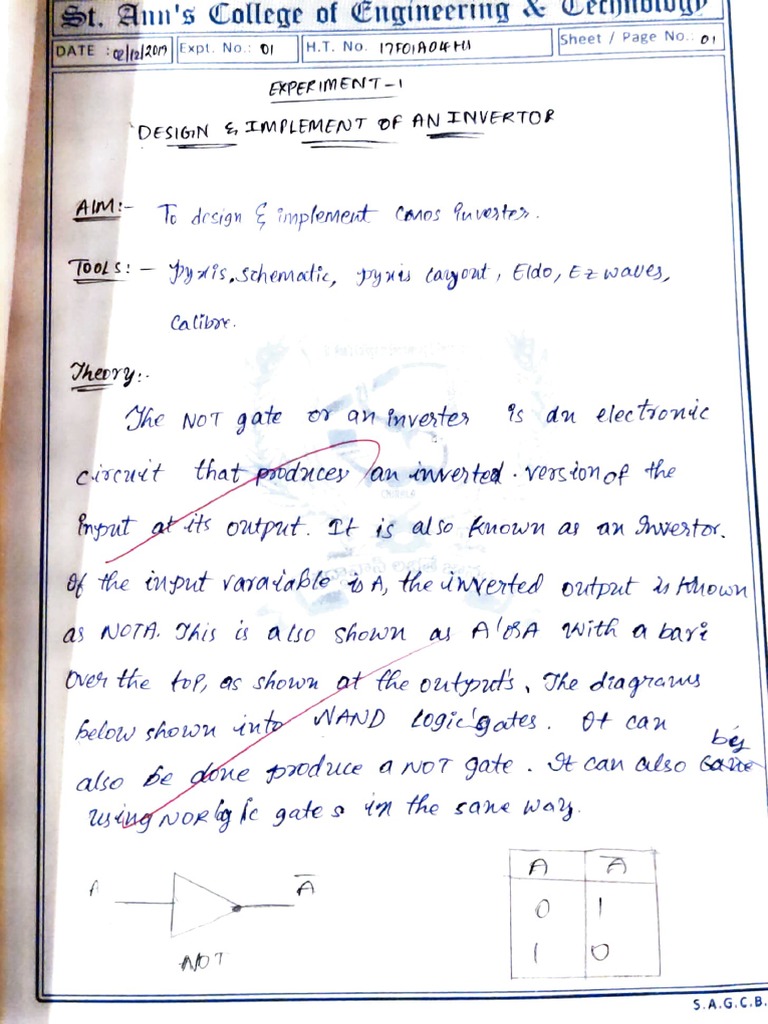 St. Ann's College of Engineering & Technology
DATE : 02/12/2019 Expt. No.: 01 H.T. No. 17F01A04H1 Sheet / Page No.: 01
EXPERIMENT-1
DESIGN & IMPLEMENT OF AN INVERTOR
AIM:- To design & implement cmos inverter.
TOOLS:- pyxis schematic, pyxis layout, Eldo, Ez waves,
Calibre.
Theory:-
The NOT gate or an inverter is an electronic
circuit that produces an inverted version of the
input at its output. It is also known as an Invertor.
If the input varaiable is A, the inverted output is known
as NOTA. This is also shown as A' or A with a bar
over the top, as shown at the output's. The diagrams
below shown into NAND logic gates. It can
also be done produce a NOT gate. It can also
by
using NOR logic gates in the same way.
A A̅ A A̅
0 1
1 0
NOT
S.A.G.C.B.